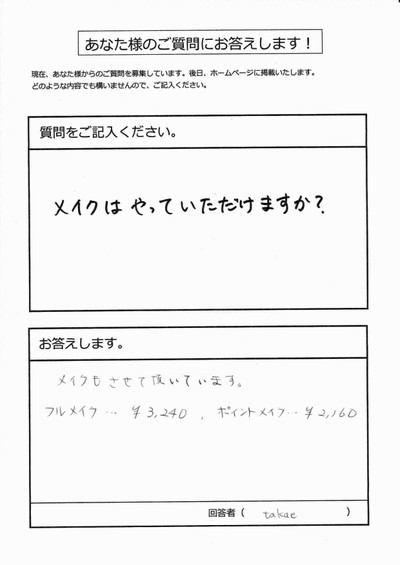 あなた様のご質問にお答えします！
現在、あなた様からのご質問を募集しています。後日、ホームページに掲載いたします。
どのような内容でも構いませんので、ご記入ください。
質問をご記入ください。
メイクは やっていただけますか？
お答えします。
メイクもさせて頂いています。
フルメイク… ¥3,240 、ポイントメイク… ¥2,160
回答者（ takae ）